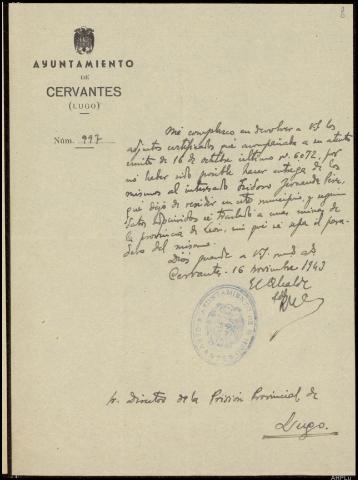 8
AYUNTAMIENTO
DE
CERVANTES
(LUGO)
Núm. 997
Me complazco en devolver a V.S. los
adjuntos certificados que acompañaba a su atento
escrito de 16 de octubre último nº 6072, por
no haber sido posible hacer entrega de los
mismos al interesado Isidoro Fernandez
que dejó de residir en este municipio, y según
datos adquiridos se trasladó a unas minas de
la provincia de Leon, sin que se sepa el para-
dero del mismo.
Dios guarde a V.S. ms. as.
Cervantes, 16 noviembre 1943
El Alcalde
AYUNTAMIENTO DE
CERVANTES
Sr. Director de la Prisión Provincial de
Lugo.
AHPLu